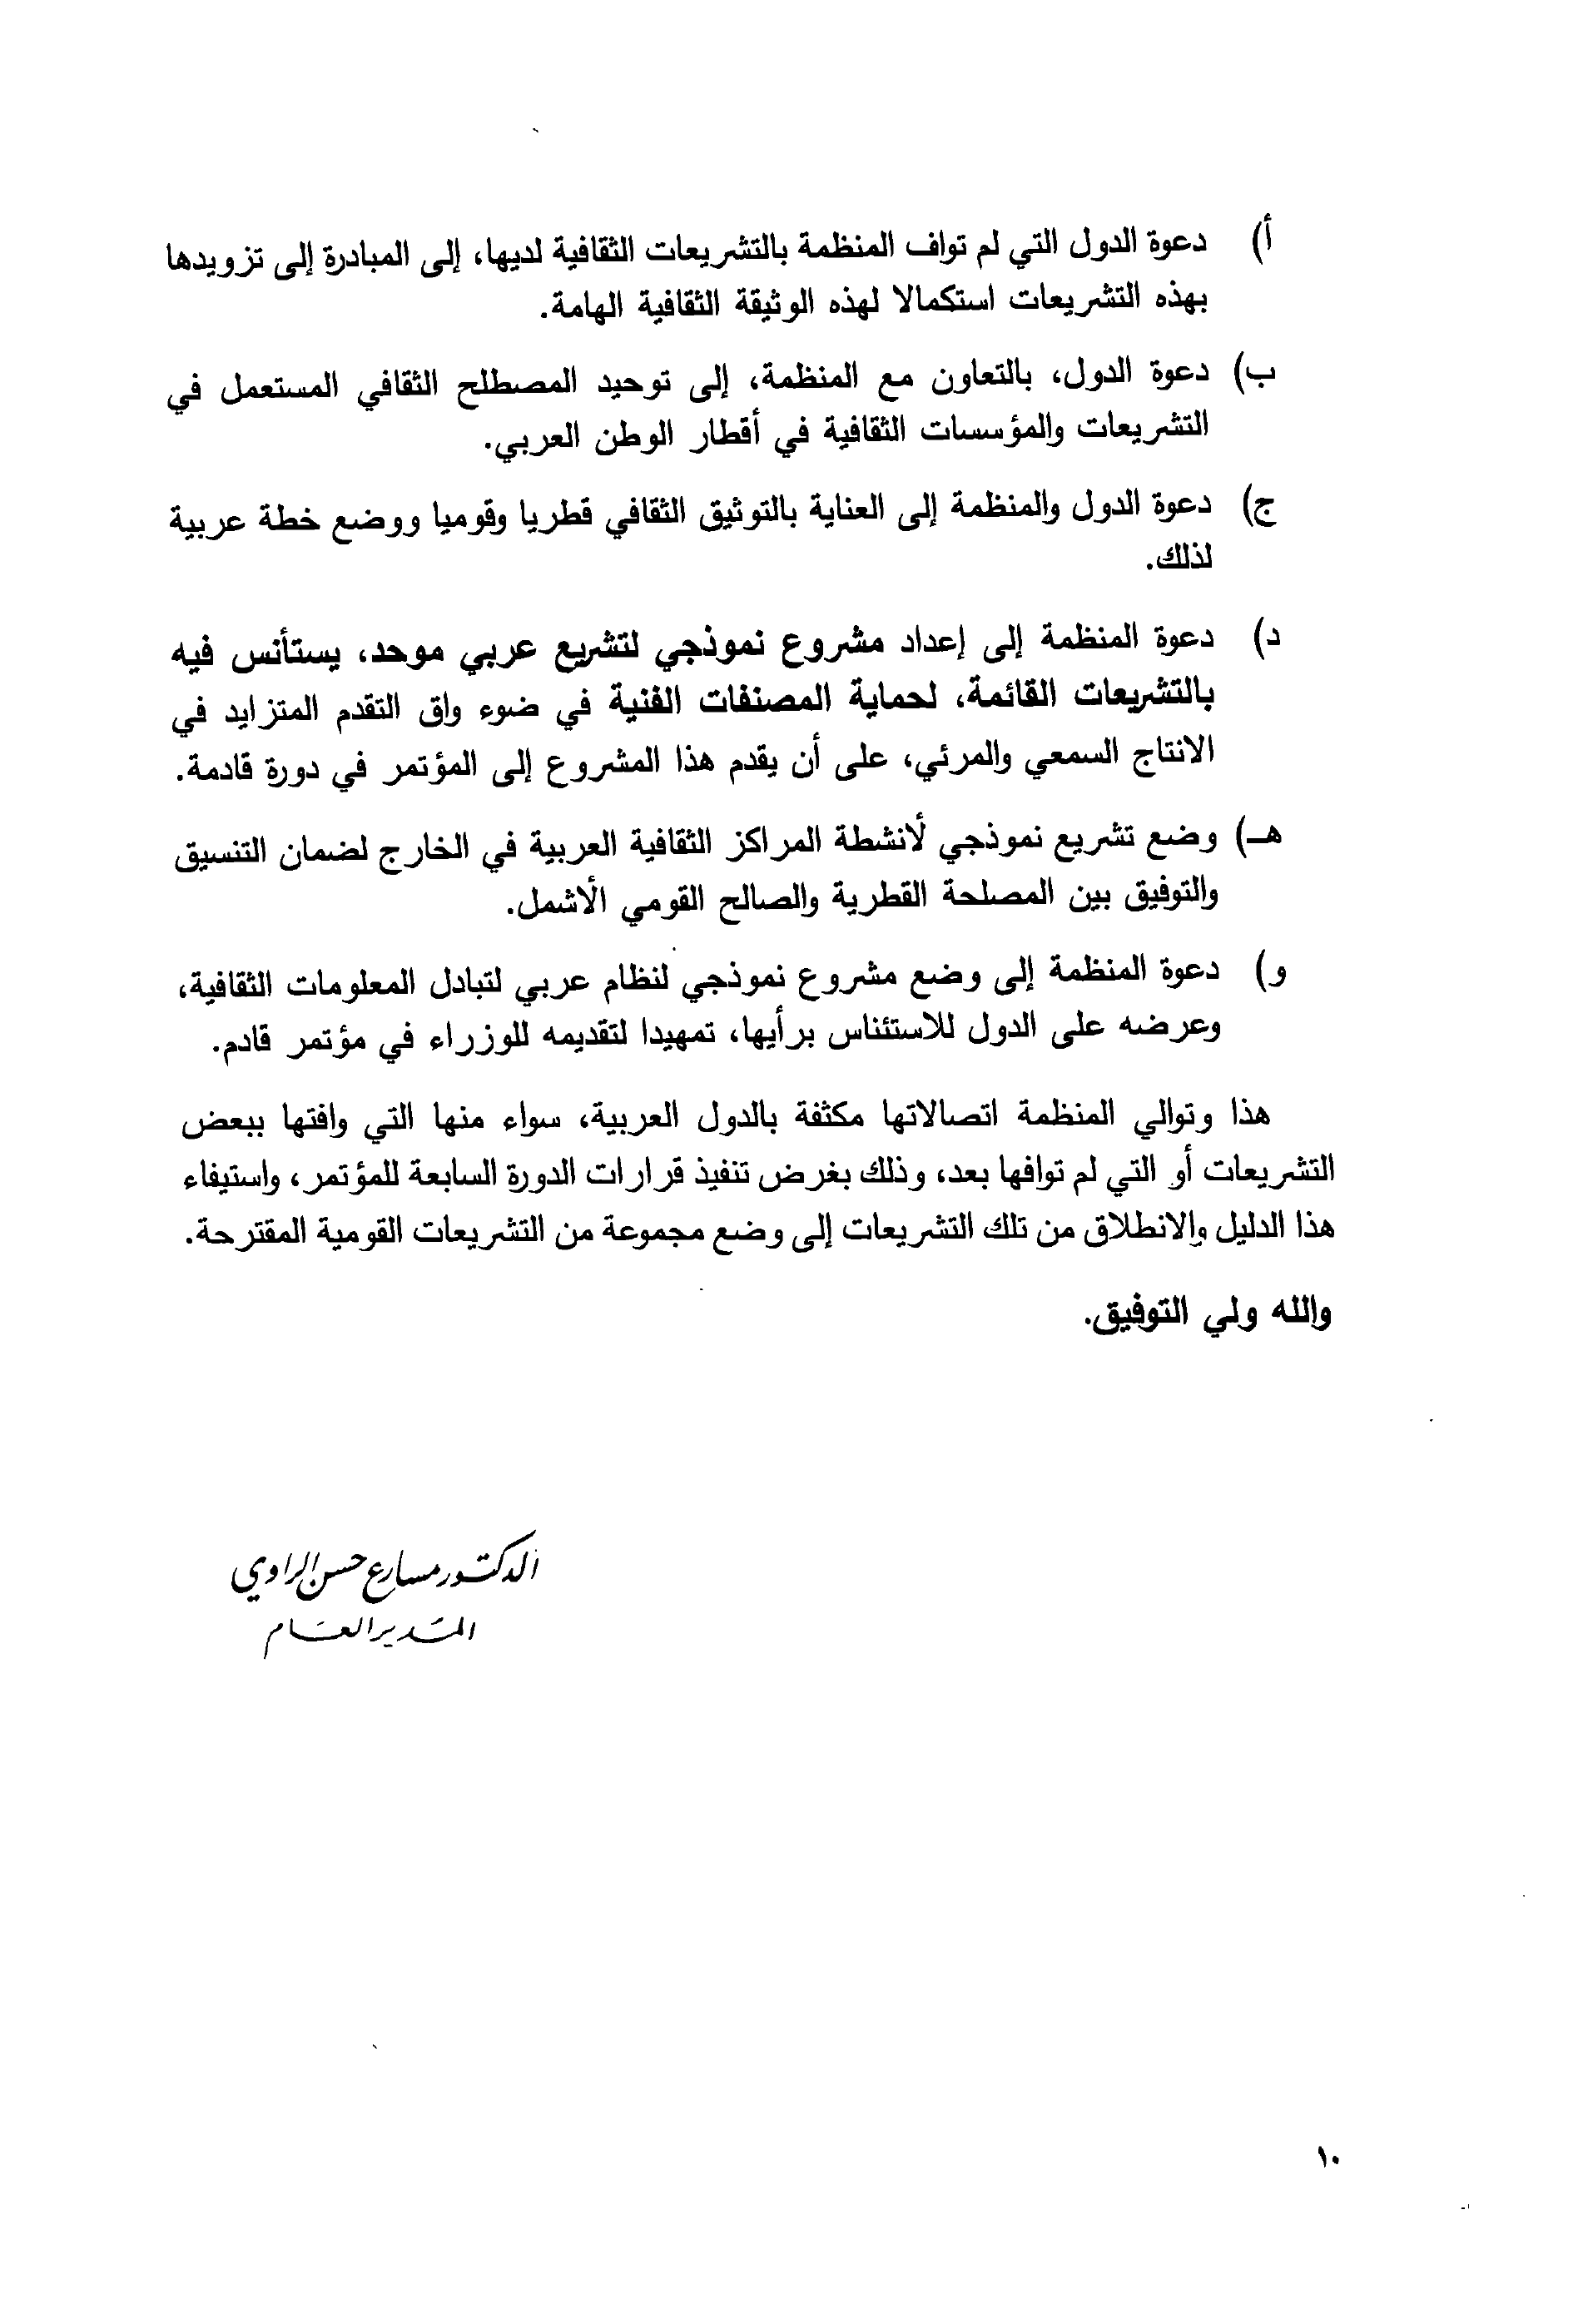 أ) دعوة الدول التي لم تواف المنظمة بالتشريعات الثقافية لديها، إلى المبادرة إلى تزويدها
بهذه التشريعات استكمالا لهذه الوثيقة الثقافية الهامة.
ب) دعوة الدول، بالتعاون مع المنظمة، إلى توحيد المصطلح الثقافي المستعمل في
التشريعات والمؤسسات الثقافية في أقطار الوطن العربي.
ج) دعوة الدول والمنظمة إلى العناية بالتوثيق الثقافي قطريا وقوميا ووضع خطة عربية
لذلك.
د) دعوة المنظمة إلى إعداد مشروع نموذجي لتشريع عربي موحد، يستأنس فيه
بالتشريعات القائمة، لحماية المصنفات الفنية في ضوء واق التقدم المتزايد في
الانتاج السمعي والمرئي، على أن يقدم هذا المشروع إلى المؤتمر في دورة قادمة.
هـ) وضع تشريع نموذجي لأنشطة المراكز الثقافية العربية في الخارج لضمان التنسيق
والتوفيق بين المصلحة القطرية والصالح القومي الأشمل.
و) دعوة المنظمة إلى وضع مشروع نموذجي لنظام عربي لتبادل المعلومات الثقافية،
وعرضه على الدول للاستئناس برأيها، تمهيدا لتقديمه للوزراء في مؤتمر قادم.
هذا وتوالي المنظمة اتصالاتها مكثفة بالدول العربية، سواء منها التي وافتها ببعض
التشريعات أو التي لم توافها بعد، وذلك بغرض تنفيذ قرارات الدورة السابعة للمؤتمر، واستيفاء
هذا الدليل والانطلاق من تلك التشريعات إلى وضع مجموعة من التشريعات القومية المقترحة.
والله ولي التوفيق.
الدكتور مسارع حسن الراوي
المدير العام
١٠